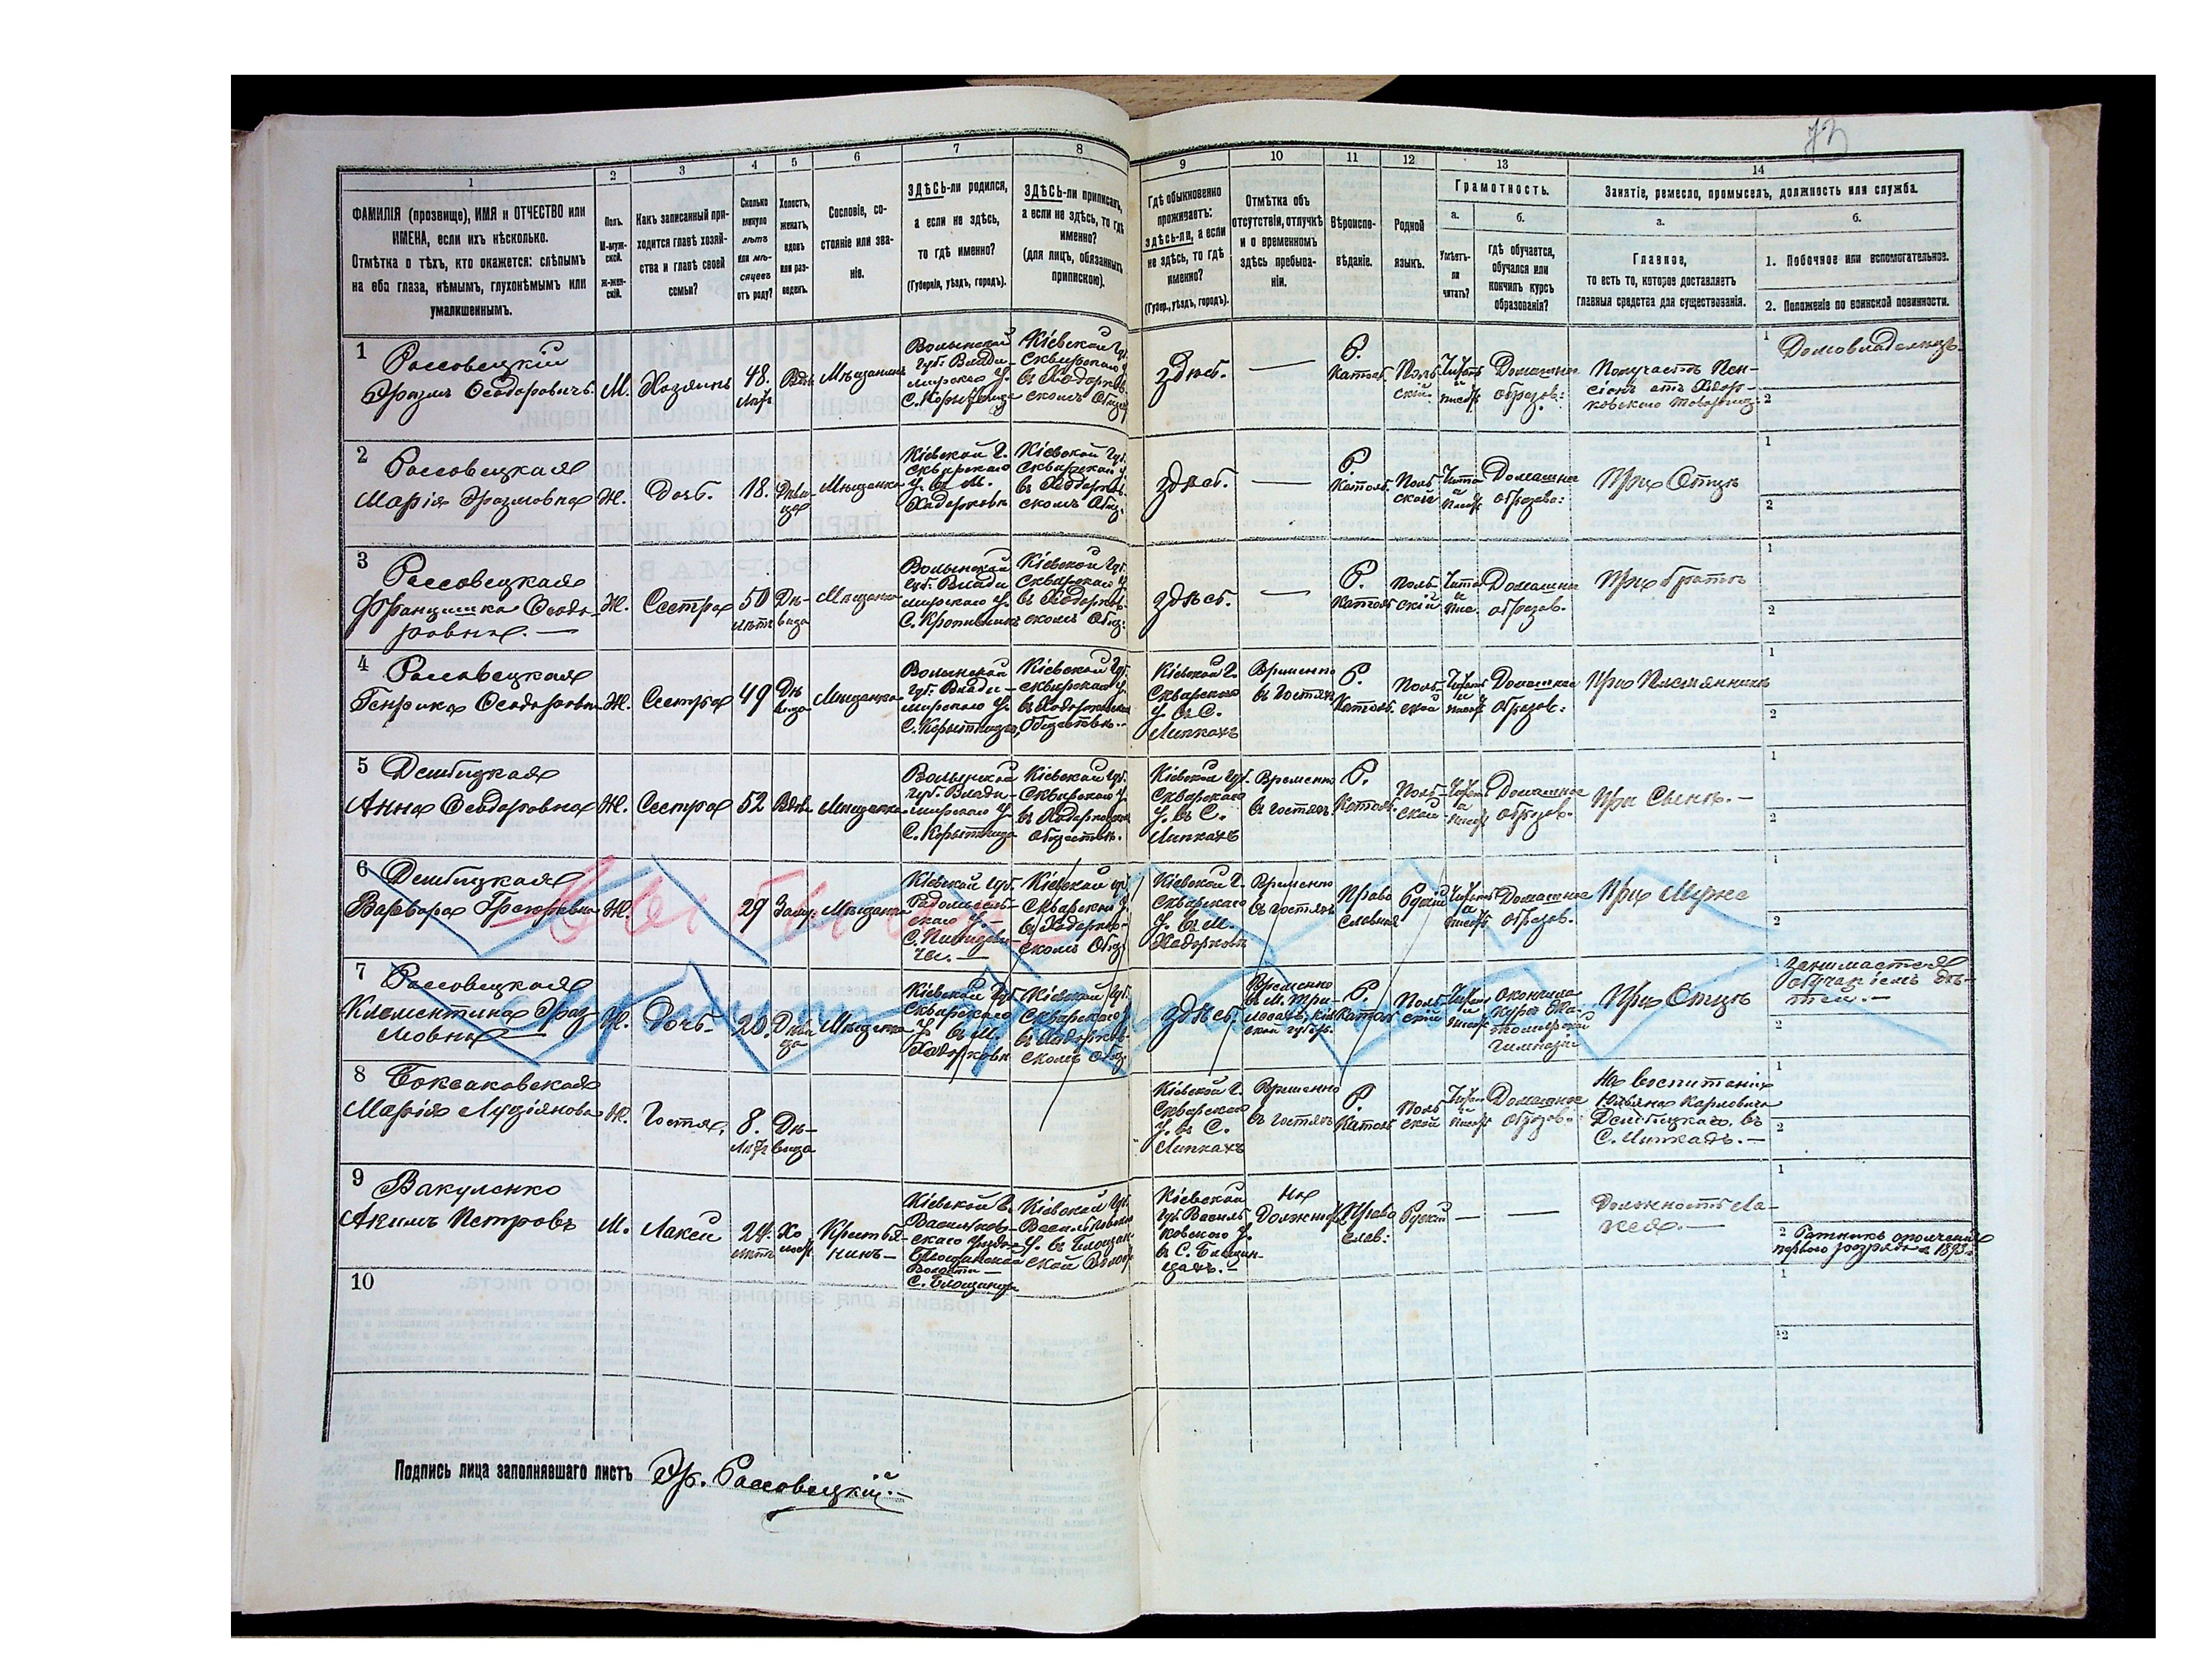 73
1
2
3
4
5
6
7
8
9
10
11
12
13
14
ФАМИЛІЯ (прозвище), ИМЯ и ОТЧЕСТВО или
ИМЕНА, если ихъ нѣсколько.
Отмѣтка о тѣхъ, кто окажется: слѣпымъ
на оба глаза, нѣмымъ, глухонѣмымъ или
умалишеннымъ.
Полъ.
М-муж-
ской.
Ж-жен-
скій.
Какъ записанный при-
ходится главѣ хозяй-
ства и главѣ своей
семьи?
Сколько
минуло
лѣтъ
или мѣ-
сяцевъ
отъ роду?
Холостъ,
женатъ,
вдовъ
или раз-
веденъ.
Сословіе, со-
стояніе или зва-
ніе.
ЗДѢСЬ-ли родился,
а если не здѣсь,
то гдѣ именно?
(Губернія, уѣздъ, городъ).
ЗДѢСЬ-ли приписанъ,
а если не здѣсь, то гдѣ
именно?
(для лицъ, обязанныхъ
припискою).
Гдѣ обыкновенно
проживаетъ:
здѣсь-ли, а если
не здѣсь, то гдѣ
именно?
(Губер., уѣздъ, городъ).
Отмѣтка объ
отсутствіи, отлучкѣ
и о временномъ
здѣсь пребыва-
ніи.
Вѣроиспо-
вѣданіе.
Родной
языкъ.
Грамотность.
а.
б.
Умѣетъ-
ли
читать?
гдѣ обучается,
обучался или
кончилъ курсъ
образованія?
Занятіе, ремесло, промыселъ, должность или служба.
а.
б.
Главное,
то есть то, которое доставляетъ
главныя средства для существованія.
1. Побочное или вспомогательное.
2. Положеніе по воинской повинности.
1 Россовецкій
Эразмъ Ѳеодоровичъ.
М.
Хозяинъ
48.
Лѣтъ
Вдов
Мѣщанинъ
Волынской
Губ. Влади-
мірскаго У.
С. Корытница
Кіевской Губ.
Сквирскаго У.
въ Ходорков-
скомъ Общ.
здѣсь.
—
Р.
Катол.
Поль
скій.
Домашнее
образов:
Получаетъ Пен-
сіонъ отъ Ходор-
ковскаго Товарищ.
1 Домовладелецъ.
2
2 Россовецкая
Марія Эразмовна
Ж.
Дочь.
18.
Дѣви-
ца
Мѣщанка
Кіевской Г.
Сквирскаго
У. въ М.
Ходорковѣ
Кіевской Губ.
Сквирскаго У.
въ Ходорков-
скомъ Общ.
здѣсь.
—
Р.
Катол.
Поль
ской
Домашнее
образов:
При Отцѣ
1
2
3 Россовецкая
Францишка Ѳеодо-
ровна. —
Ж.
Сестра
50
Лѣтъ
Дѣ-
вица
Мѣщанка
Волынской
Губ. Влади
мірскаго У.
С. Кропивникъ
Кіевской Губ.
Сквирскаго У.
въ Ходорков-
скомъ Общ:
здѣсь.
—
Р.
Катол
Поль
скій
Чита
и
пис.
Домашнее
образов.
При братѣ
1
2
4 Россовецкая
Генрика Ѳеодоровна
Ж.
Сестра
49
Дѣ
вица
Мѣщанка
Волынской
Губ. Влади-
мірскаго У.
С. Корытница,
Кіевской Губ.
Сквирскаго У.
въ Ходорковск
Обществѣ.
Кіевской Г.
Сквирскаго
У. въ С.
Липкахъ
Временно
въ Гостяхъ
Р.
Катол.
Поль
ской
Домашнее
образов:
При Племянникѣ
1
2
5 Дембицкая
Анна Ѳеодоровна
Ж.
Сестра
52
Вдова
Мѣщанка
Волынской
Губ. Влади-
мірскаго У.
С. Корытница
Кіевской Губ.
Сквирскаго У.
въ Ходорковском
обществѣ.
Кіевской Губ.
Сквирскаго
У. въ С.
Липкахъ
Временно
въ гостяхъ.
Р.
Катол.
Поль
ской
Домашнее
образов.
При Сынѣ. —
1
2
6 Дембицкая
Варвара Григорьевна
Ж.
29
Заму.
Мѣщанка
Кіевской Губ.
Радомысль-
скаго У.
Кіевской губ.
Сквирскаго У.
въ Ходорков-
скомъ Общ.
Кіевской Г.
Сквирскаго
У. въ М.
Ходорковѣ
Временно
въ гостяхъ
Право
славная
Рускій
Домашнее
образов.
При Мужѣ
1
2
7 Россовецкая
Клементина Эраз-
мовна
Ж.
Дочь
20.
Дѣви
ца
Мѣщанка
Кіевской Губ.
Сквирскаго
У. въ М.
Ходорковѣ
Кіевской Губ.
Сквирскаго У.
въ Ходорков-
скомъ Общ.
здѣсь.
Временно
Р.
Катол
Поль
скій
окончила
курсъ Жи-
томирской
гимназіи
При Отцѣ
1 занимается
обученіемъ дѣ-
тей. —
2
8
Марія
Ж.
Гостья.
8.
Лѣтъ
Дѣ-
вица
Кіевской Г.
Сквирскаго
У. въ С.
Липкахъ
Временно
въ гостяхъ
Р.
Катол
Поль
ской
Домашнее
образов.
На воспитаніи
Юльяна Карловича
Дембицкаго, въ
С. Липкахъ. —
1
2
9 Вакуленко
Акимъ Петровъ
М.
Лакей
24.
лѣтъ
Хо
лост
Крестья-
нинъ —
Кіевской Г.
Васильков-
скаго Уѣзда
Волости —
Кіевской Губ.
Васильковскаго
У.
Кіевской
Губ Василь
ковскаго У.
На
Должност
Право
слав:
Рускій
—
—
Должность Ла-
кея. —
1
2 Ратникъ ополченія
перваго разряда 1893
10
1
2
Подпись лица заполнявшаго листъ Эр. Россовецкій. —